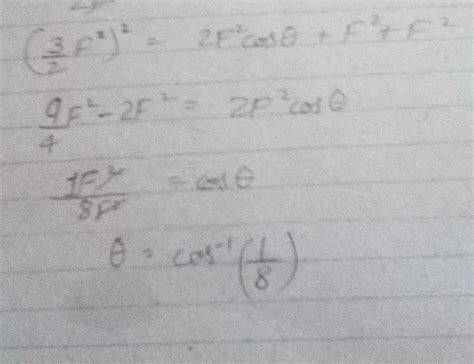 (3/2 F²)² = 2F²cosθ + F² + F²
9F²/4 - 2F² = 2F²cosθ
1F²/8F² = cosθ
θ = cos⁻¹(1/8)